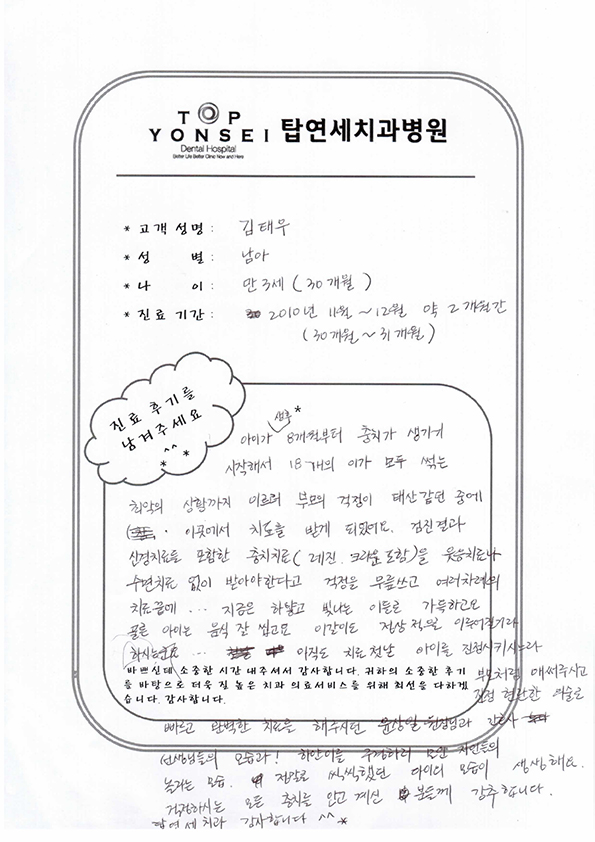 TOP
YONSEI 탑연세치과병원
Dental Hospital
Better Life Better Clinic Now and Here
* 고객 성명 : 김태우
* 성 별 : 남아
* 나 이 : 만 3세 ( 30개월 )
* 진료 기간 : 2010년 11월 ~ 12월 약 2개월간
(30개월 ~ 31개월)
진료 후기를
남겨주세요
^^
* *
생후 *
아이가 8개월부터 충치가 생기기
시작해서 18개의 이가 모두 썩는
최악의 상황까지 이르러 부모의 걱정이 태산같던 중에
이곳에서 치료를 받게 되었어요. 검진결과
신경치료를 포함한 충치치료( 레진, 크라운 포함)을 웃음치료나
수면치료 없이 받아야한다고 걱정을 무릅쓰고 여러차례의
치료끝에 ... 지금은 하얗고 빛나는 이들로 가득하고요
물론 아이는 음식 잘 씹고요 이갈이도 정상적으로 이루어질거라
하시는군요 아직도 치료전날 아이를 진정시키시느라
바쁘신데 소중한 시간 내주셔서 감사합니다. 귀하의 소중한 후기
를 바탕으로 더욱 질 높은 치과 의료서비스를 위해 최선을 다하겠
습니다. 감사합니다.
부모처럼 애써주시고
진정 현란한 예술로
빠르고 완벽한 치료를 해주시던 윤상일 원장님과 간호사
선생님들의 모습과! 하얀이를 주변 지인들의
놀라는 모습. 정말로 씩씩했던 아이의 모습이 생생해요.
걱정하시는 모든 충치를 안고 계신 분들께 강추합니다.
탑연세치과 감사합니다 ^^ *